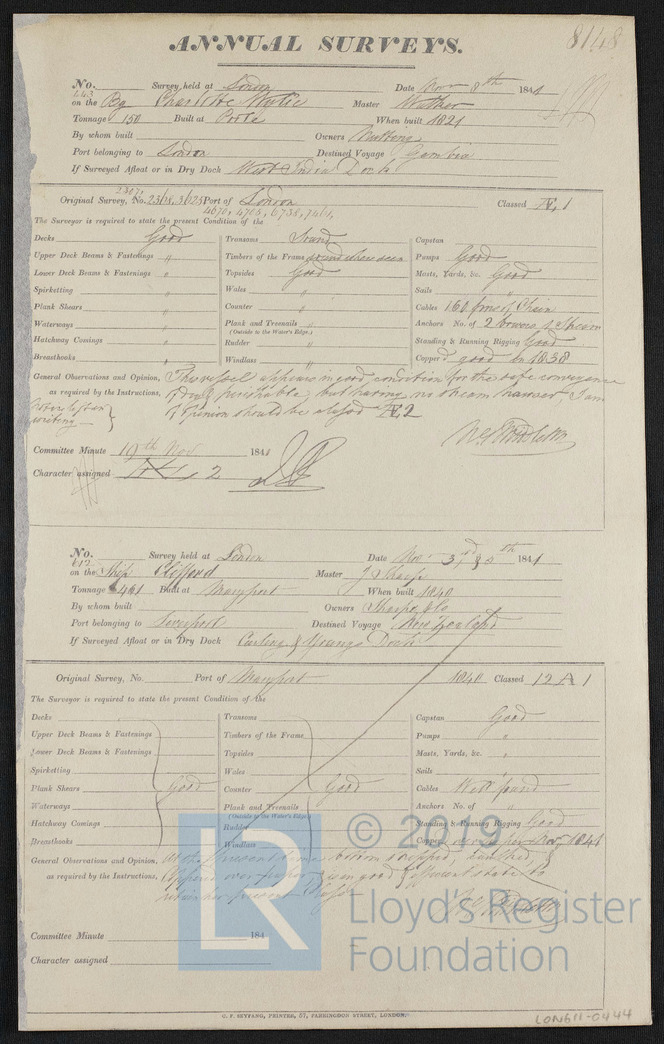 ANNUAL SURVEYS.
8148
No. 443 Survey held at London Date Nov 8th 1841
on the Bg Charlotte Wylie Master
Tonnage 150 Built at Poole When built 1821
By whom built Owners
Port belonging to London Destined Voyage Gambia
If Surveyed Afloat or in Dry Dock West India Dock
Original Survey, No. 2318, 3623 Port of London Classed Æ 1
4670, 4703, 6738, 7461,
The Surveyor is required to state the present Condition of the
Decks Good Transoms Sound Capstan
Upper Deck Beams & Fastenings " Timbers of the Frame sound where seen Pumps Good
Lower Deck Beams & Fastenings " Topsides Good Masts, Yards, &c. Good
Spirketting Wales " Sails "
Plank Shears " Counter " Cables 160 fms of Chain
Waterways " Plank and Treenails " Anchors No. of 2 bowers 1 Stream
(Outside to the Water's Edge.)
Hatchway Comings " Rudder " Standing & Running Rigging Good
Breasthooks " Windlass " Copper'd good in 1838
General Observations and Opinion, This vessel appears in good condition for the safe conveyance
as required by the Instructions, of dry & perishable, but having no stream hawser, I am
of opinion should be classed Æ 2
writing
Committee Minute 19th Nov 1841
Character assigned Æ 2
No. 612 Survey held at London Date Nov 3rd & 5th 1841
on the Ship Clifford Master J Sharp
Tonnage 461 Built at Maryport When built 1840
By whom built Owners Sharp & Co
Port belonging to Liverpool Destined Voyage New Zealand
If Surveyed Afloat or in Dry Dock Curling & Youngs Dock
Original Survey, No. Port of Maryport 1840 Classed 12 A 1
The Surveyor is required to state the present Condition of the
Decks Transoms Capstan Good
Upper Deck Beams & Fastenings Timbers of the Frame Pumps "
Lower Deck Beams & Fastenings Topsides Masts, Yards, &c. "
Spirketting Wales Sails
Plank Shears Good Counter Good Cables Well found
Waterways Plank and Treenails Anchors No. of "
(Outside to the Water's Edge.)
Hatchway Comings Rudder Standing & Running Rigging Good
Breasthooks Windlass Copper Nov 1841
General Observations and Opinion,
as required by the Instructions, good & efficient state to
Committee Minute 184
Character assigned
© 2019
LR
Lloyd's Register
Foundation
C. F. SEYFANG, PRINTER, 57, FARRINGDON STREET, LONDON.
LON611-0444